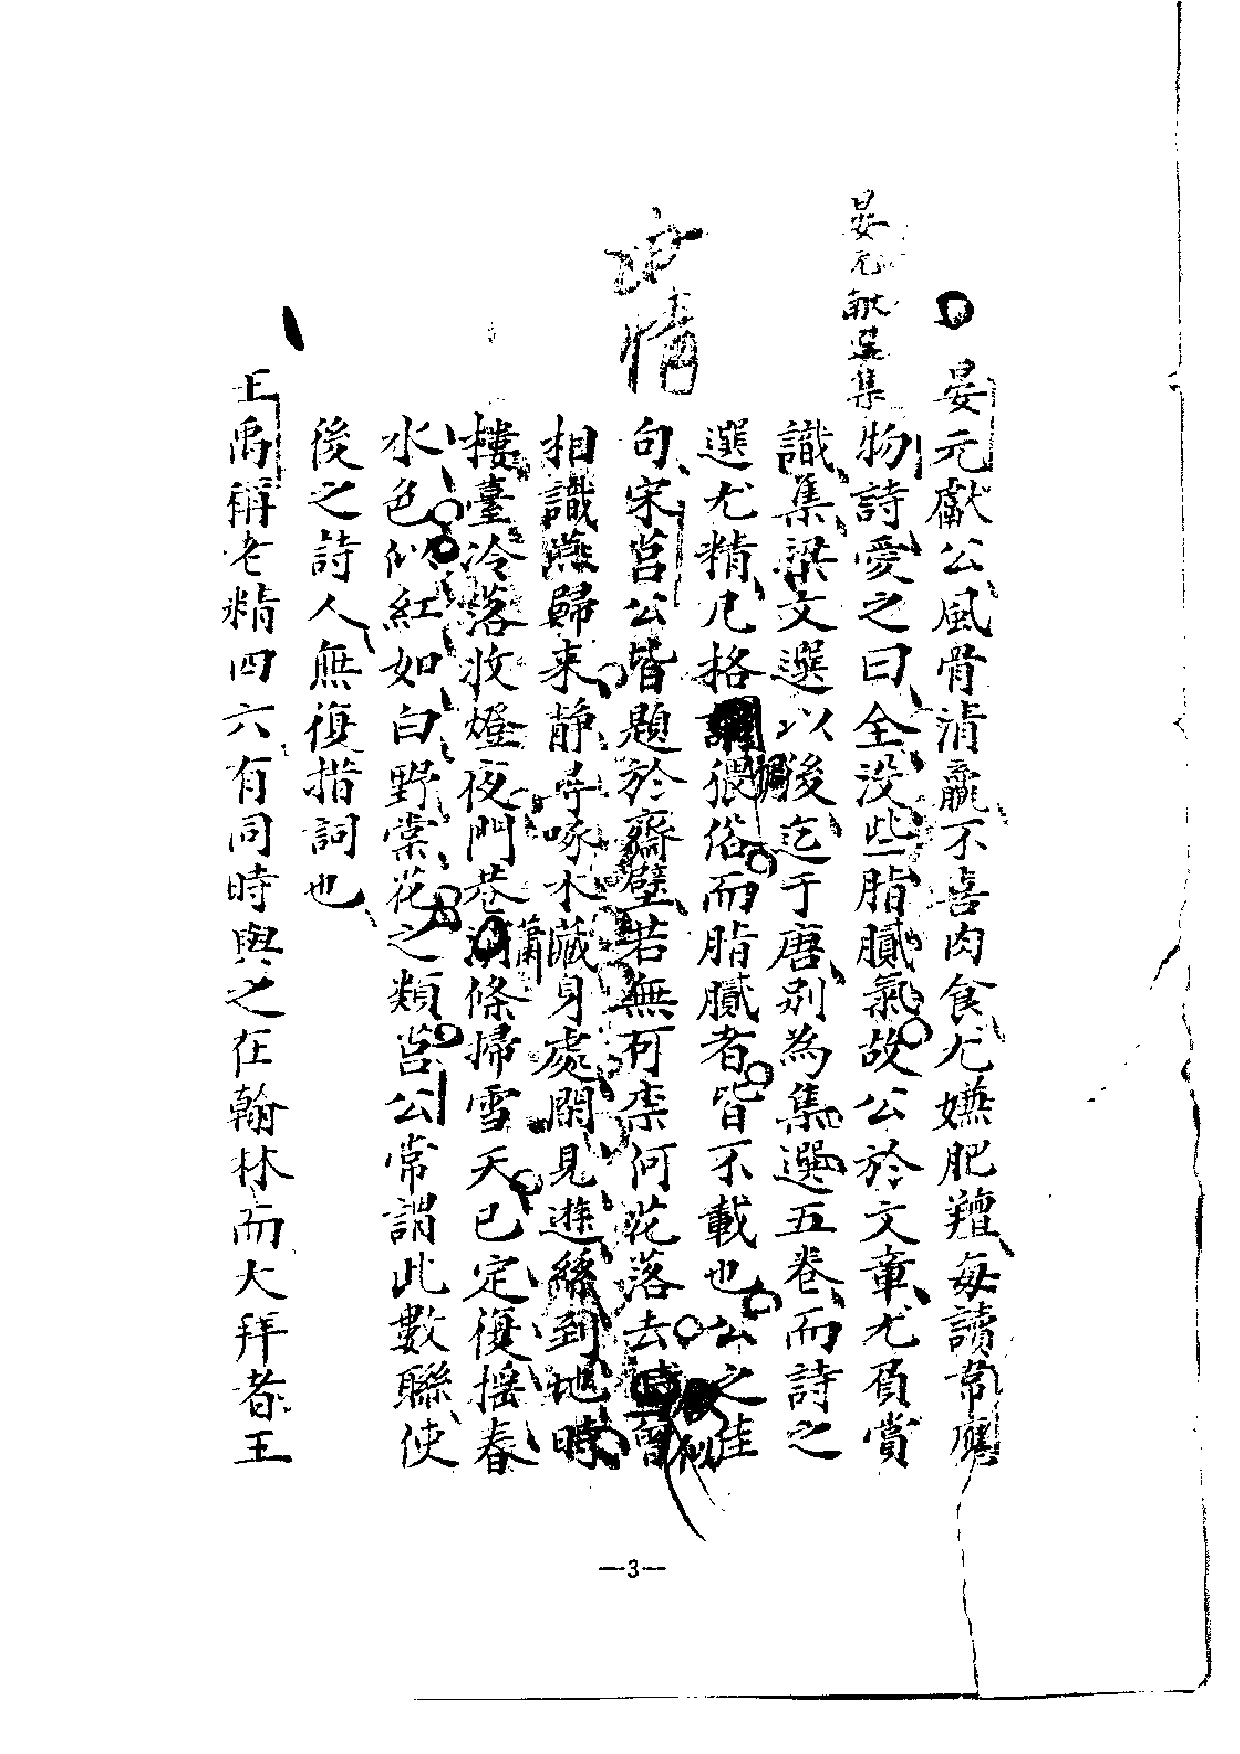 晏元獻公風骨清羸不喜肉食尤嫌肥羶每讀韋應
物詩愛之曰全没些脂膩氣故公於文章尤負賞
識集梁文選以後迄于唐別為集選五卷而詩之
選尤精凡格調猥俗而脂膩者皆不載也公之佳
句宋莒公皆題於齋壁若無可柰何花落去似曾
相識燕歸来静尋啄木藏身處閑見遊絲到地時
樓臺冷落收燈夜門巷蕭條掃雪天已定復揺春
水色似紅如白野棠花之類莒公常謂此數聯使
後之詩人無復措詞也
王禹稱老精四六有同時與之在翰林而大拜者王
晏元献選集
情
—3—